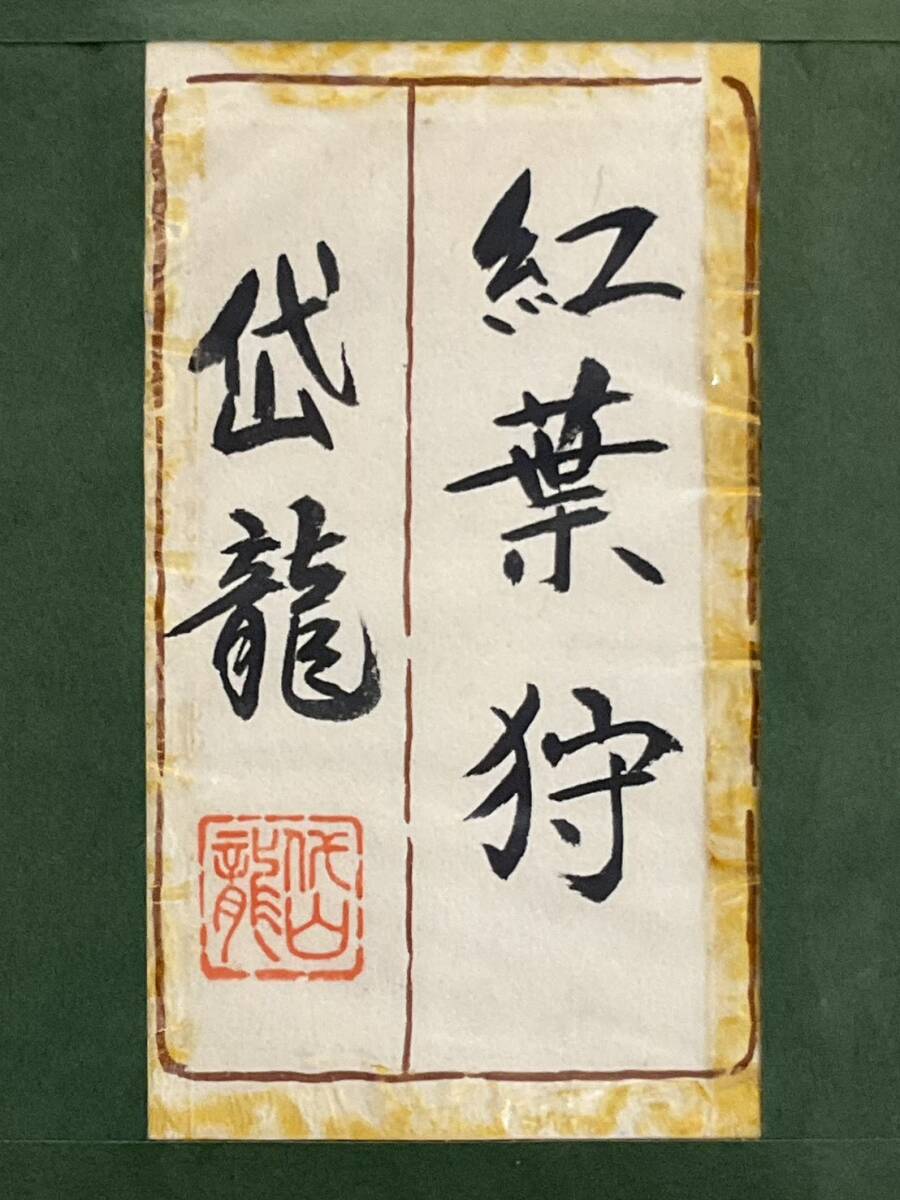 紅葉狩
岱龍
岱龍